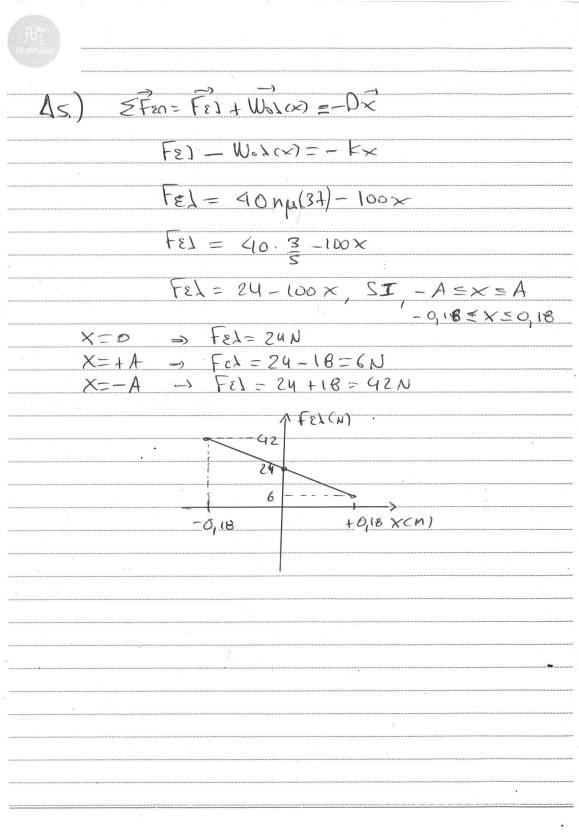 Mathica
Δ5.) ΣFεπ = Fελ + Wολ(x) = -Dx
Fελ - Wολ(x) = -kx
Fελ = 40ημ(37) - 100x
Fελ = 40 · 3/5 - 100x
Fελ = 24 - 100x, SI, -A ≤ x ≤ A
-0,18 ≤ x ≤ 0,18
x=0 ⇒ Fελ = 24N
x=+A ⇒ Fελ = 24 - 18 = 6N
x=-A → Fελ = 24 + 18 = 42N
Fελ(N)
42
24
6
-0,18 +0,18 x(m)